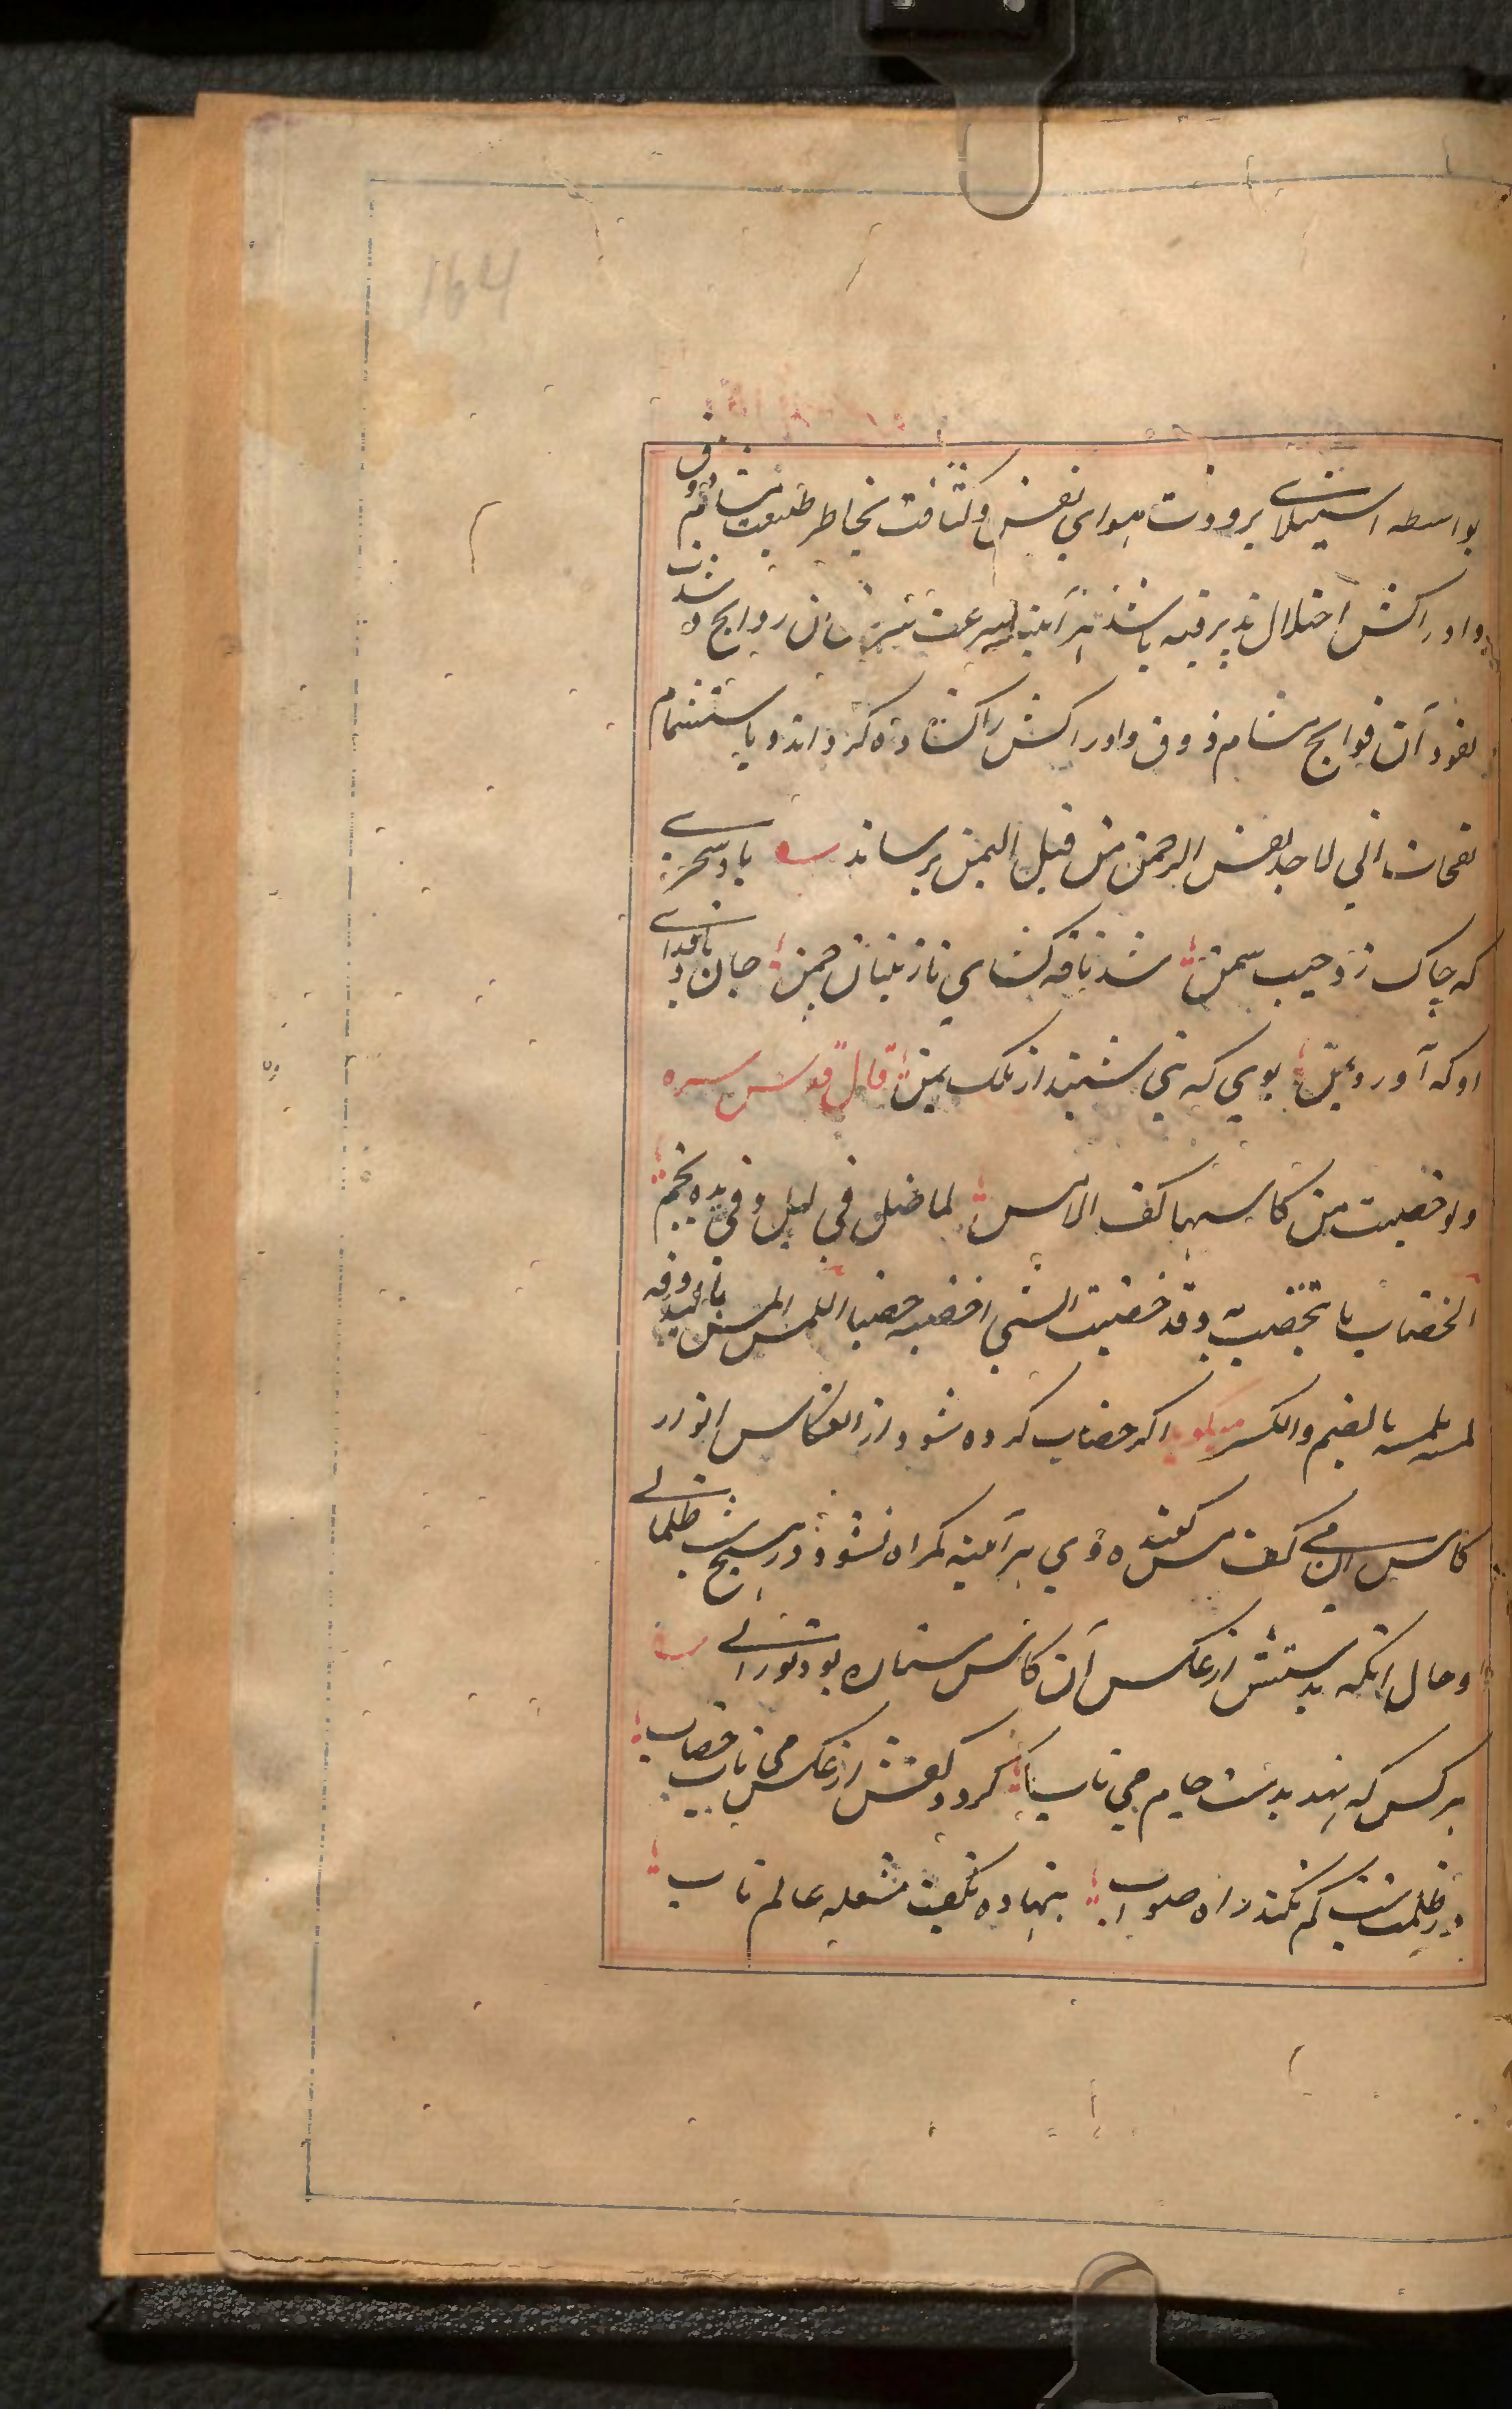 164
بواسطه استیلای برودت هوای نفس وکثافت بخاطر طبیعت مشام ذوق
وادراکش اختلال پذیرفته باشد هر آینه بسرعت سریان روایح وشدت
نفوذ آن فوایح مشام ذوق وادراکش را کشاده کرداند و باستشمام
نفحات انی لاجد نفس الرحمن من قبل الیمن برساند باد سحری
که چاک زد جیب سمن شد نافه کشای نازنینان چمن جان باد فدای
او که آورد بمن بویی که نبی شنید از ملک یمن قال قدس سره
ولو خضبت من کاسها کف لامس لما ضل فی لیل وفی یده نجم
الخضاب ما تختضب به وقد خضبت الشی اخضبه خضبا اللمس المس بالید وقد
لمسه یلمسه بالضم والکسر میکوید اکر خضاب کرده شود از انعکاس انوار
کاس آن می کف مس کننده وی هر آینه کمراه نشود در هیچ شب ظلمانی
وحال آنکه بدستش از عکس آن کاس ستاره بود نورانی
هر کس که نهد بدست جام می ناب کردد کفش از عکس می ناب خضاب
در ظلمت شب کم نکند راه صواب بنهاده بکف مشعله عالم تاب